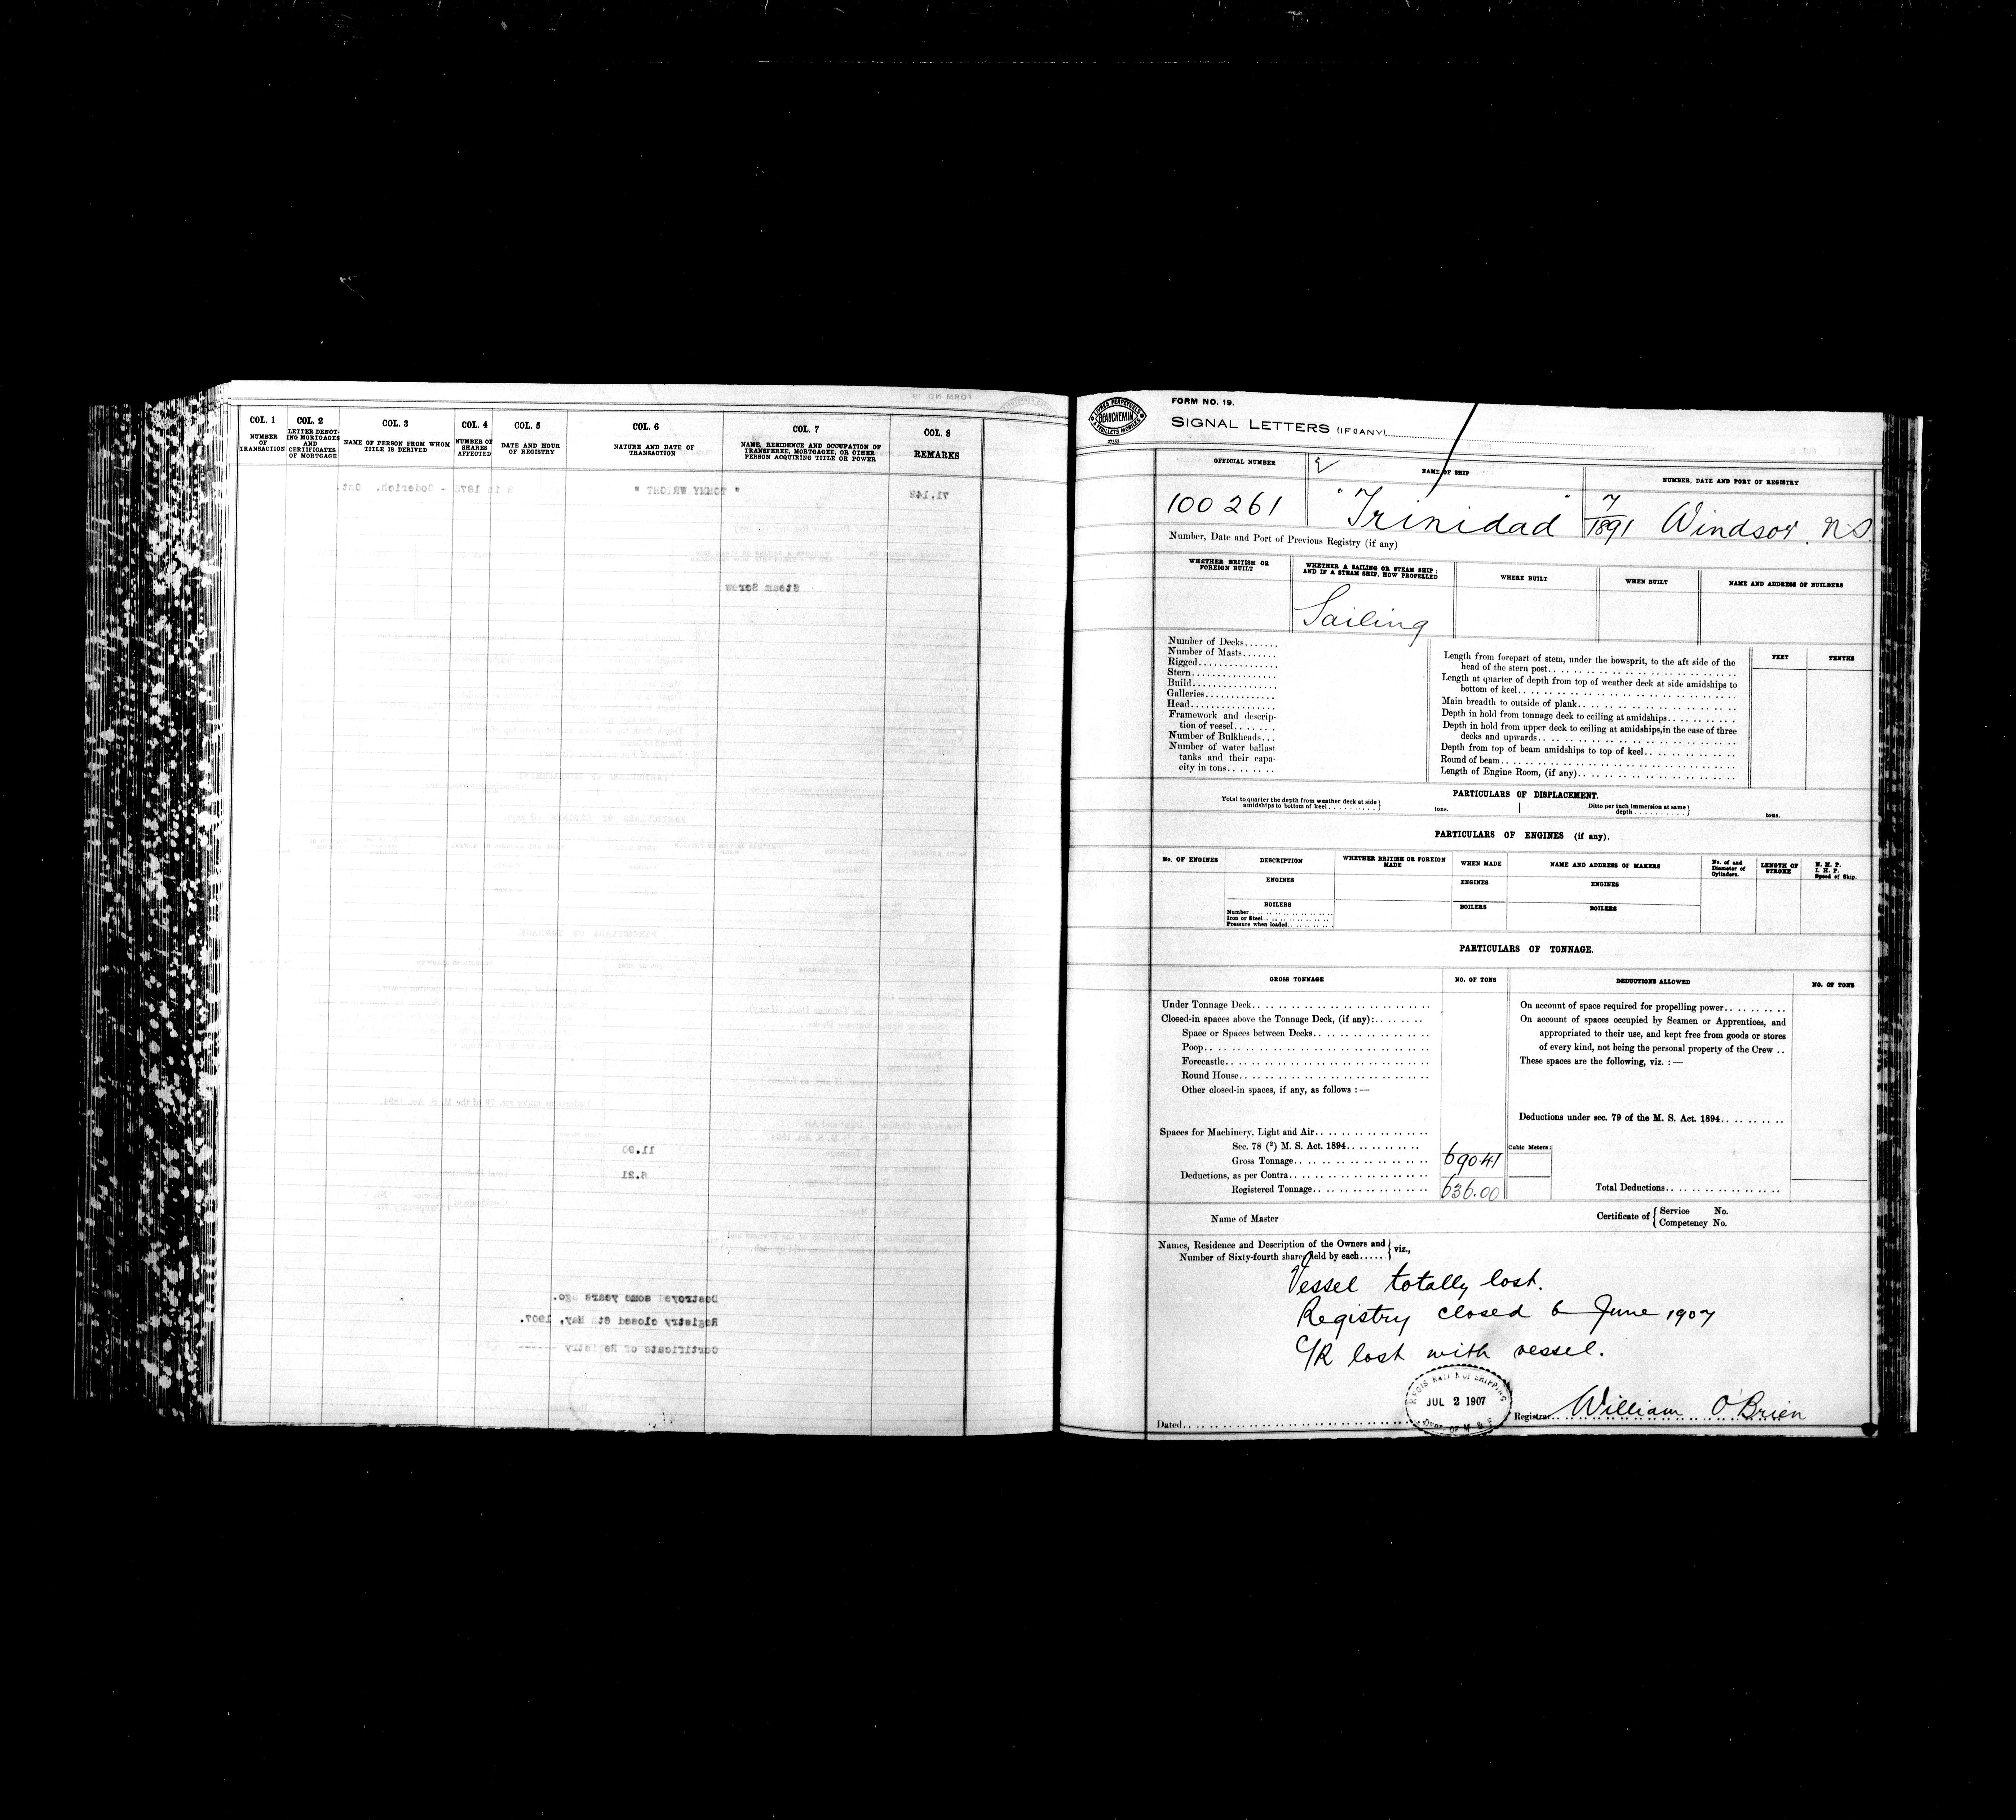 COL. 1
NUMBER OF TRANSACTION
COL. 2
LETTER DENOTING MORTGAGES AND CERTIFICATES OF MORTGAGE
COL. 3
NAME OF PERSON FROM WHOM TITLE IS DERIVED
COL. 4
NUMBER OF SHARES AFFECTED
COL. 5
DATE AND HOUR OF REGISTRY
COL. 6
NATURE AND DATE OF TRANSACTION
COL. 7
NAME, RESIDENCE AND OCCUPATION OF TRANSFEREE, MORTGAGEE, OR OTHER PERSON ACQUIRING TITLE OR POWER
COL. 8
REMARKS
" TOMMY WRIGHT "
Steam Screw
11.90
Destroyed some years ago.
Registry closed 8th May, 1907.
FORM NO. 19.
LIVRES PERPETUELS
BEAUCHEMIN
& FEUILLETS MOBILES
SIGNAL LETTERS (IF ANY)
OFFICIAL NUMBER
NAME OF SHIP
NUMBER, DATE AND PORT OF REGISTRY
100261
"Trinidad"
7/1891 Windsor. N.S.
Number, Date and Port of Previous Registry (if any)
WHETHER BRITISH OR FOREIGN BUILT
WHETHER A SAILING OR STEAM SHIP; AND IF A STEAM SHIP, HOW PROPELLED
WHERE BUILT
WHEN BUILT
NAME AND ADDRESS OF BUILDERS
Sailing
Number of Decks
Number of Masts
Rigged
Stern
Build
Galleries
Head
Framework and description of vessel
Number of Bulkheads
Number of water ballast tanks and their capacity in tons
FEET
TENTHS
Length from forepart of stem, under the bowsprit, to the aft side of the head of the stern post
Length at quarter of depth from top of weather deck at side amidships to bottom of keel
Main breadth to outside of plank
Depth in hold from tonnage deck to ceiling at amidships
Depth in hold from upper deck to ceiling at amidships, in the case of three decks and upwards
Depth from top of beam amidships to top of keel
Round of beam
Length of Engine Room, (if any)
PARTICULARS OF DISPLACEMENT.
Total to quarter the depth from weather deck at side amidships to bottom of keel
tons.
Ditto per inch immersion at same depth
tons.
PARTICULARS OF ENGINES (if any).
No. OF ENGINES
DESCRIPTION
WHETHER BRITISH OR FOREIGN MADE
WHEN MADE
NAME AND ADDRESS OF MAKERS
No. of and Diameter of Cylinders.
LENGTH OF STROKE
N. H. P.
I. H. P.
Speed of Ship.
ENGINES
ENGINES
ENGINES
BOILERS
BOILERS
BOILERS
Number
Iron or Steel
Pressure when loaded
PARTICULARS OF TONNAGE.
GROSS TONNAGE
NO. OF TONS
DEDUCTIONS ALLOWED
NO. OF TONS
Under Tonnage Deck
Closed-in spaces above the Tonnage Deck, (if any):
Space or Spaces between Decks
Poop
Forecastle
Round House
Other closed-in spaces, if any, as follows : —
Spaces for Machinery, Light and Air
Sec. 78 (²) M. S. Act. 1894
Gross Tonnage
690.41
Deductions, as per Contra
Registered Tonnage
636.00
Cubic Meters:
On account of space required for propelling power
On account of spaces occupied by Seamen or Apprentices, and appropriated to their use, and kept free from goods or stores of every kind, not being the personal property of the Crew
These spaces are the following, viz. : —
Deductions under sec. 79 of the M. S. Act. 1894
Total Deductions
Name of Master
Certificate of { Service No.
Competency No.
Names, Residence and Description of the Owners and
Number of Sixty-fourth shares held by each } viz.,
Vessel totally lost.
Registry closed 6 June 1907
C/R lost with vessel.
Dated
JUL 2 1907
Registrar William O'Brien